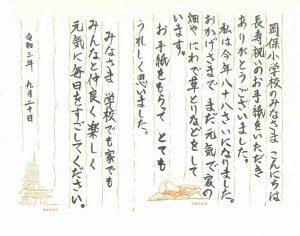 岡保小学校のみなさま こんにちは
長寿祝いのお手紙をいただき
ありがとうございました。
私は今年八十八さいになりました。
おかげさまで まだ元気で家の
畑やにわで草とりなどをして
います。
お手紙をもらって とても
うれしく思いました。
みなさま 学校でも家でも
みんなと仲良く楽しく
元気に毎日をすごしてください。
令和三年 九月二十日